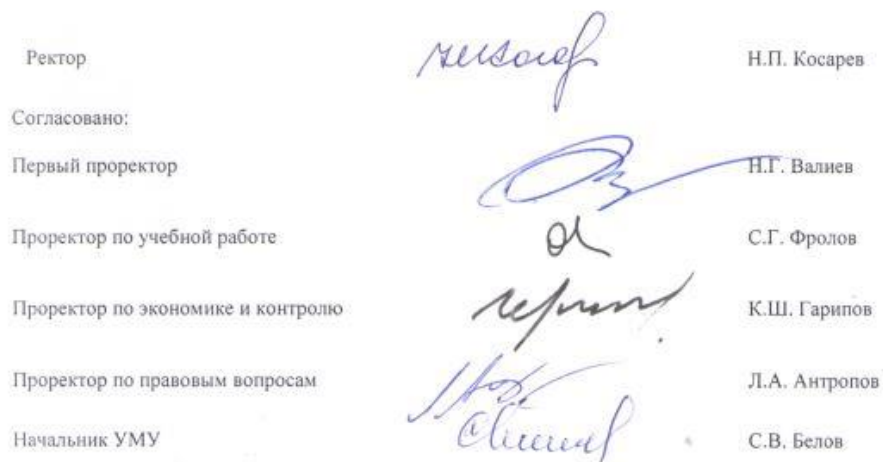 Ректор Н.П. Косарев
Согласовано:
Первый проректор Н.Г. Валиев
Проректор по учебной работе С.Г. Фролов
Проректор по экономике и контролю К.Ш. Гарипов
Проректор по правовым вопросам Л.А. Антропов
Начальник УМУ С.В. Белов